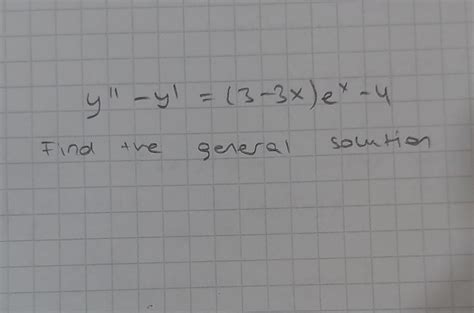 y'' - y' = (3-3x)e^x - 4
Find the general solution